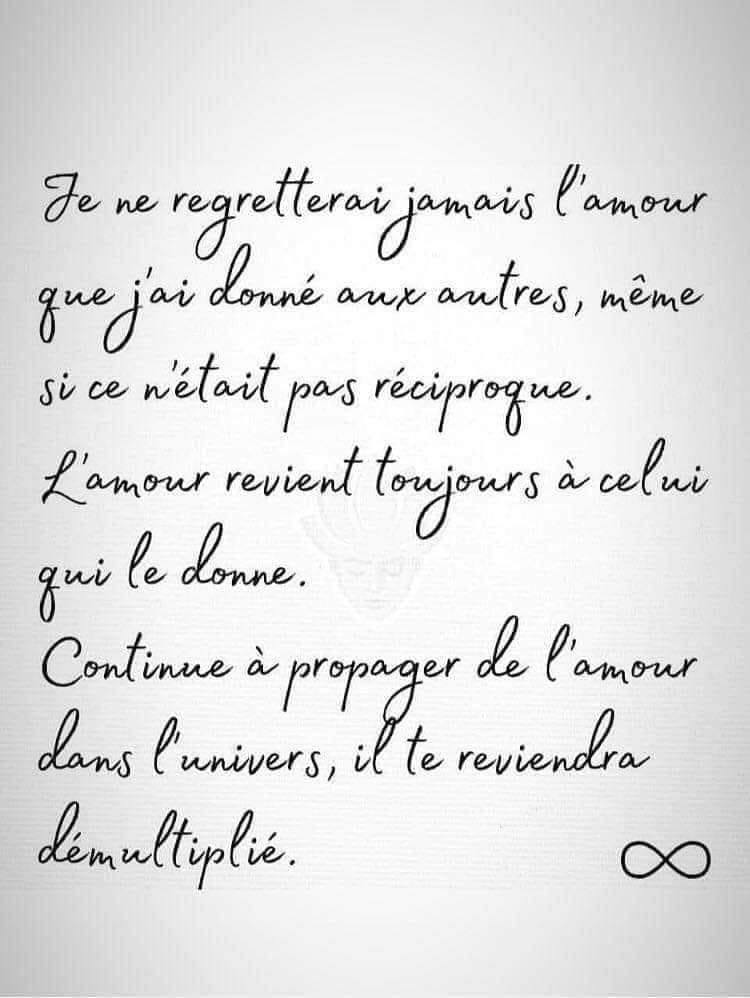 Je ne regretterai jamais l'amour
que j'ai donné aux autres, même
si ce n'était pas réciproque.
L'amour revient toujours à celui
qui le donne.
Continue à propager de l'amour
dans l'univers, il te reviendra
démultiplié.